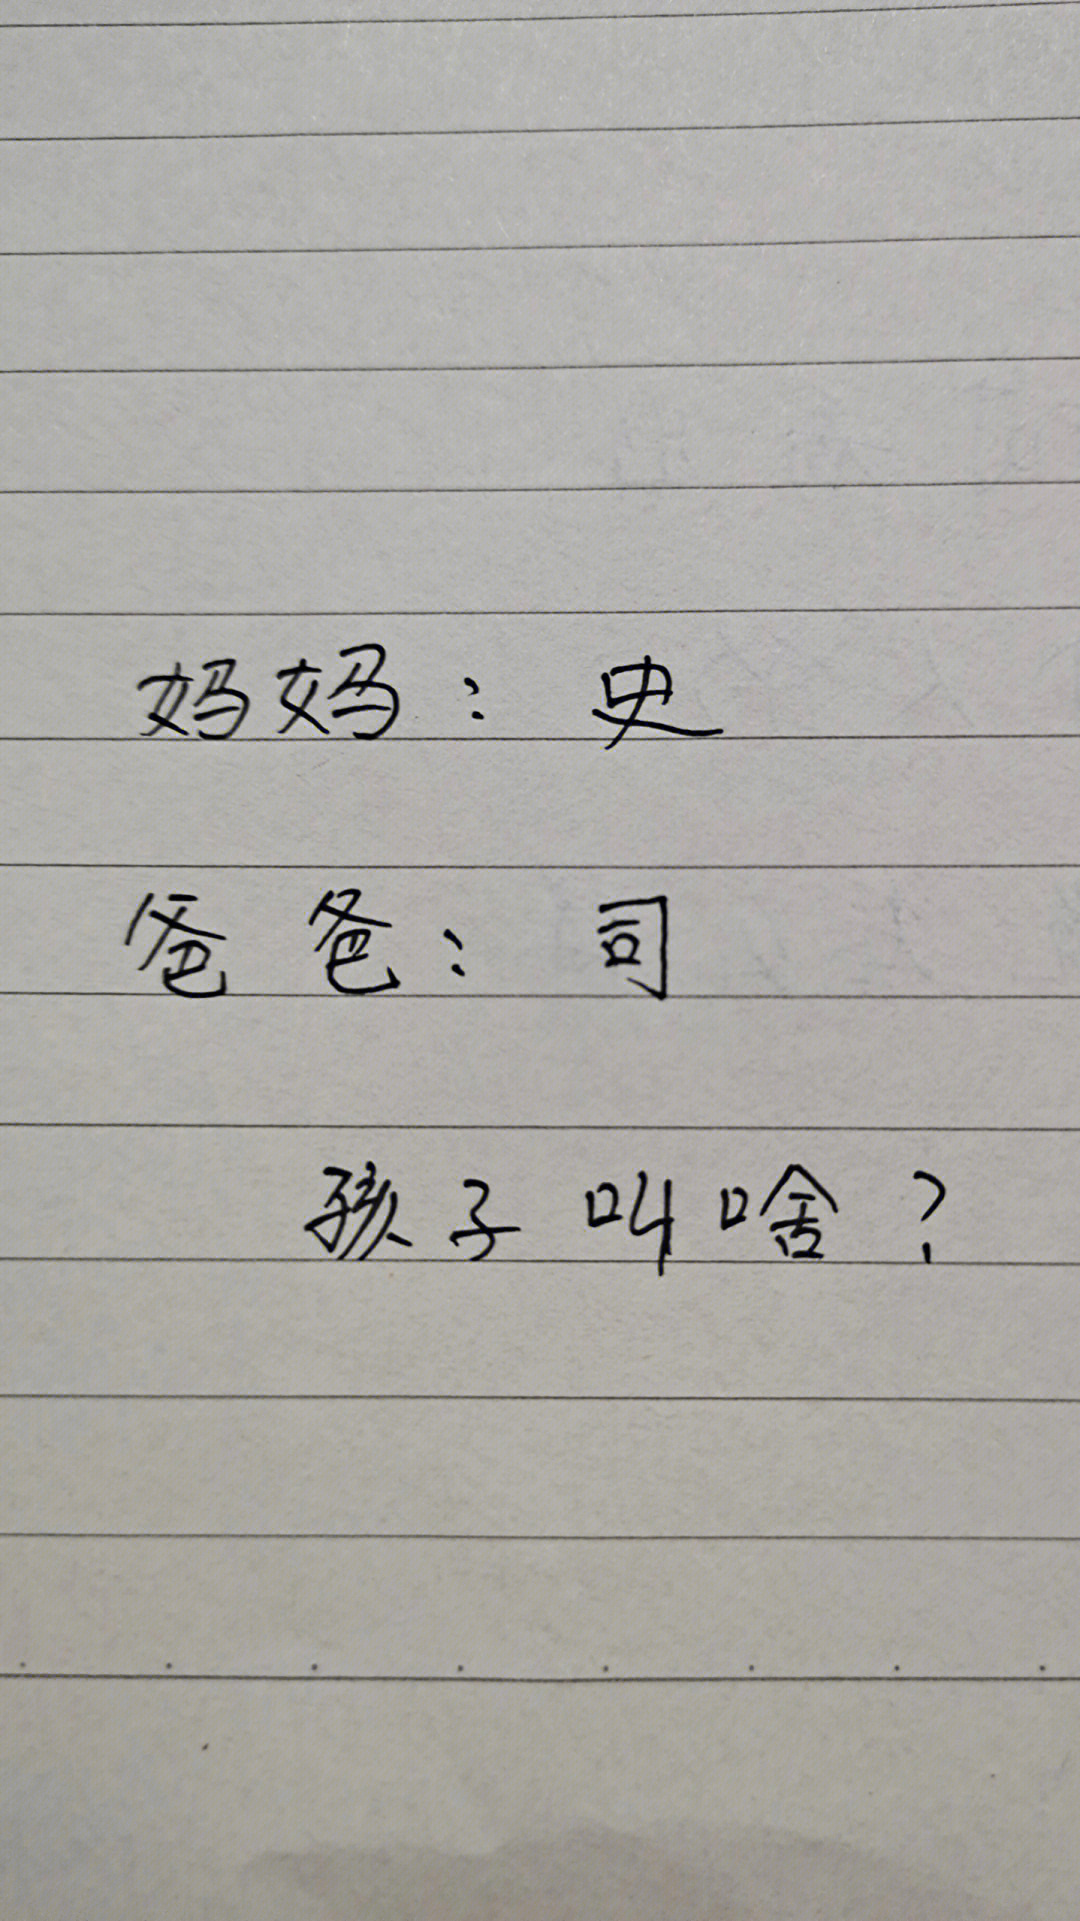 妈妈：史
爸爸：司
孩子叫啥？